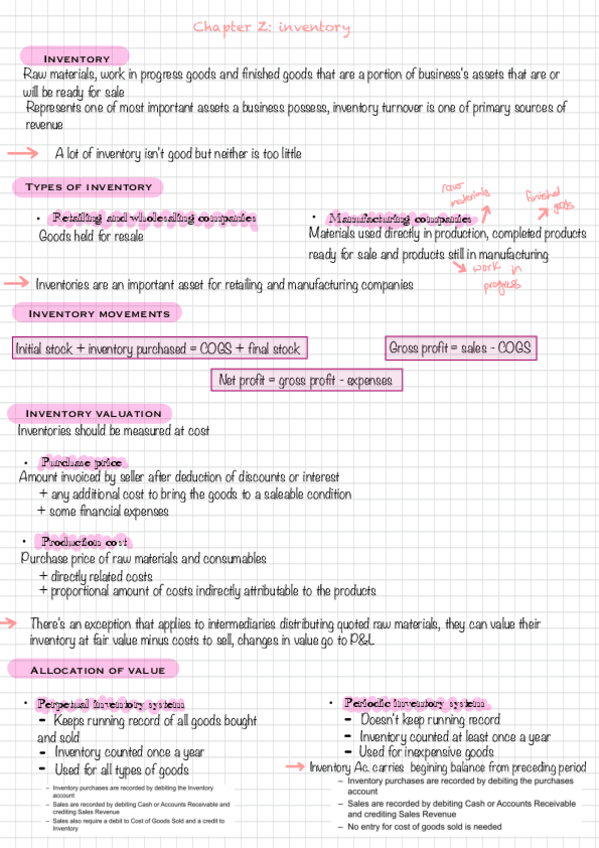 Chapter 2: inventory
INVENTORY
Raw materials, work in progress goods and finished goods that are a portion of business's assets that are or
will be ready for sale
Represents one of most important assets a business possess, inventory turnover is one of primary sources of
revenue
A lot of inventory isn't good but neither is too little
TYPES OF INVENTORY
• Retailing and wholesaling companies
Goods held for resale
raw
materials
finished
goods
• Manufacturing companies
Materials used directly in production, completed products
ready for sale and products still in manufacturing
work in
progress
Inventories are an important asset for retailing and manufacturing companies
INVENTORY MOVEMENTS
Initial stock + inventory purchased = COGS + final stock
Gross profit = sales - COGS
Net profit = gross profit - expenses
INVENTORY VALUATION
Inventories should be measured at cost
• Purchase price
Amount invoiced by seller after deduction of discounts or interest
+ any additional cost to bring the goods to a saleable condition
+ some financial expenses
• Production cost
Purchase price of raw materials and consumables
+ directly related costs
+ proportional amount of costs indirectly attributable to the products
There's an exception that applies to intermediaries distributing quoted raw materials, they can value their
inventory at fair value minus costs to sell, changes in value go to P&L
ALLOCATION OF VALUE
• Perpetual inventory system
- Keeps running record of all goods bought
and sold
- Inventory counted once a year
- Used for all types of goods
– Inventory purchases are recorded by debiting the Inventory
account
– Sales are recorded by debiting Cash or Accounts Receivable and
crediting Sales Revenue
– Sales also require a debit to Cost of Goods Sold and a credit to
Inventory
• Periodic inventory system
- Doesn't keep running record
- Inventory counted at least once a year
- Used for inexpensive goods
Inventory Ac. carries begining balance from preceding period
– Inventory purchases are recorded by debiting the purchases
account
– Sales are recorded by debiting Cash or Accounts Receivable
and crediting Sales Revenue
– No entry for cost of goods sold is needed